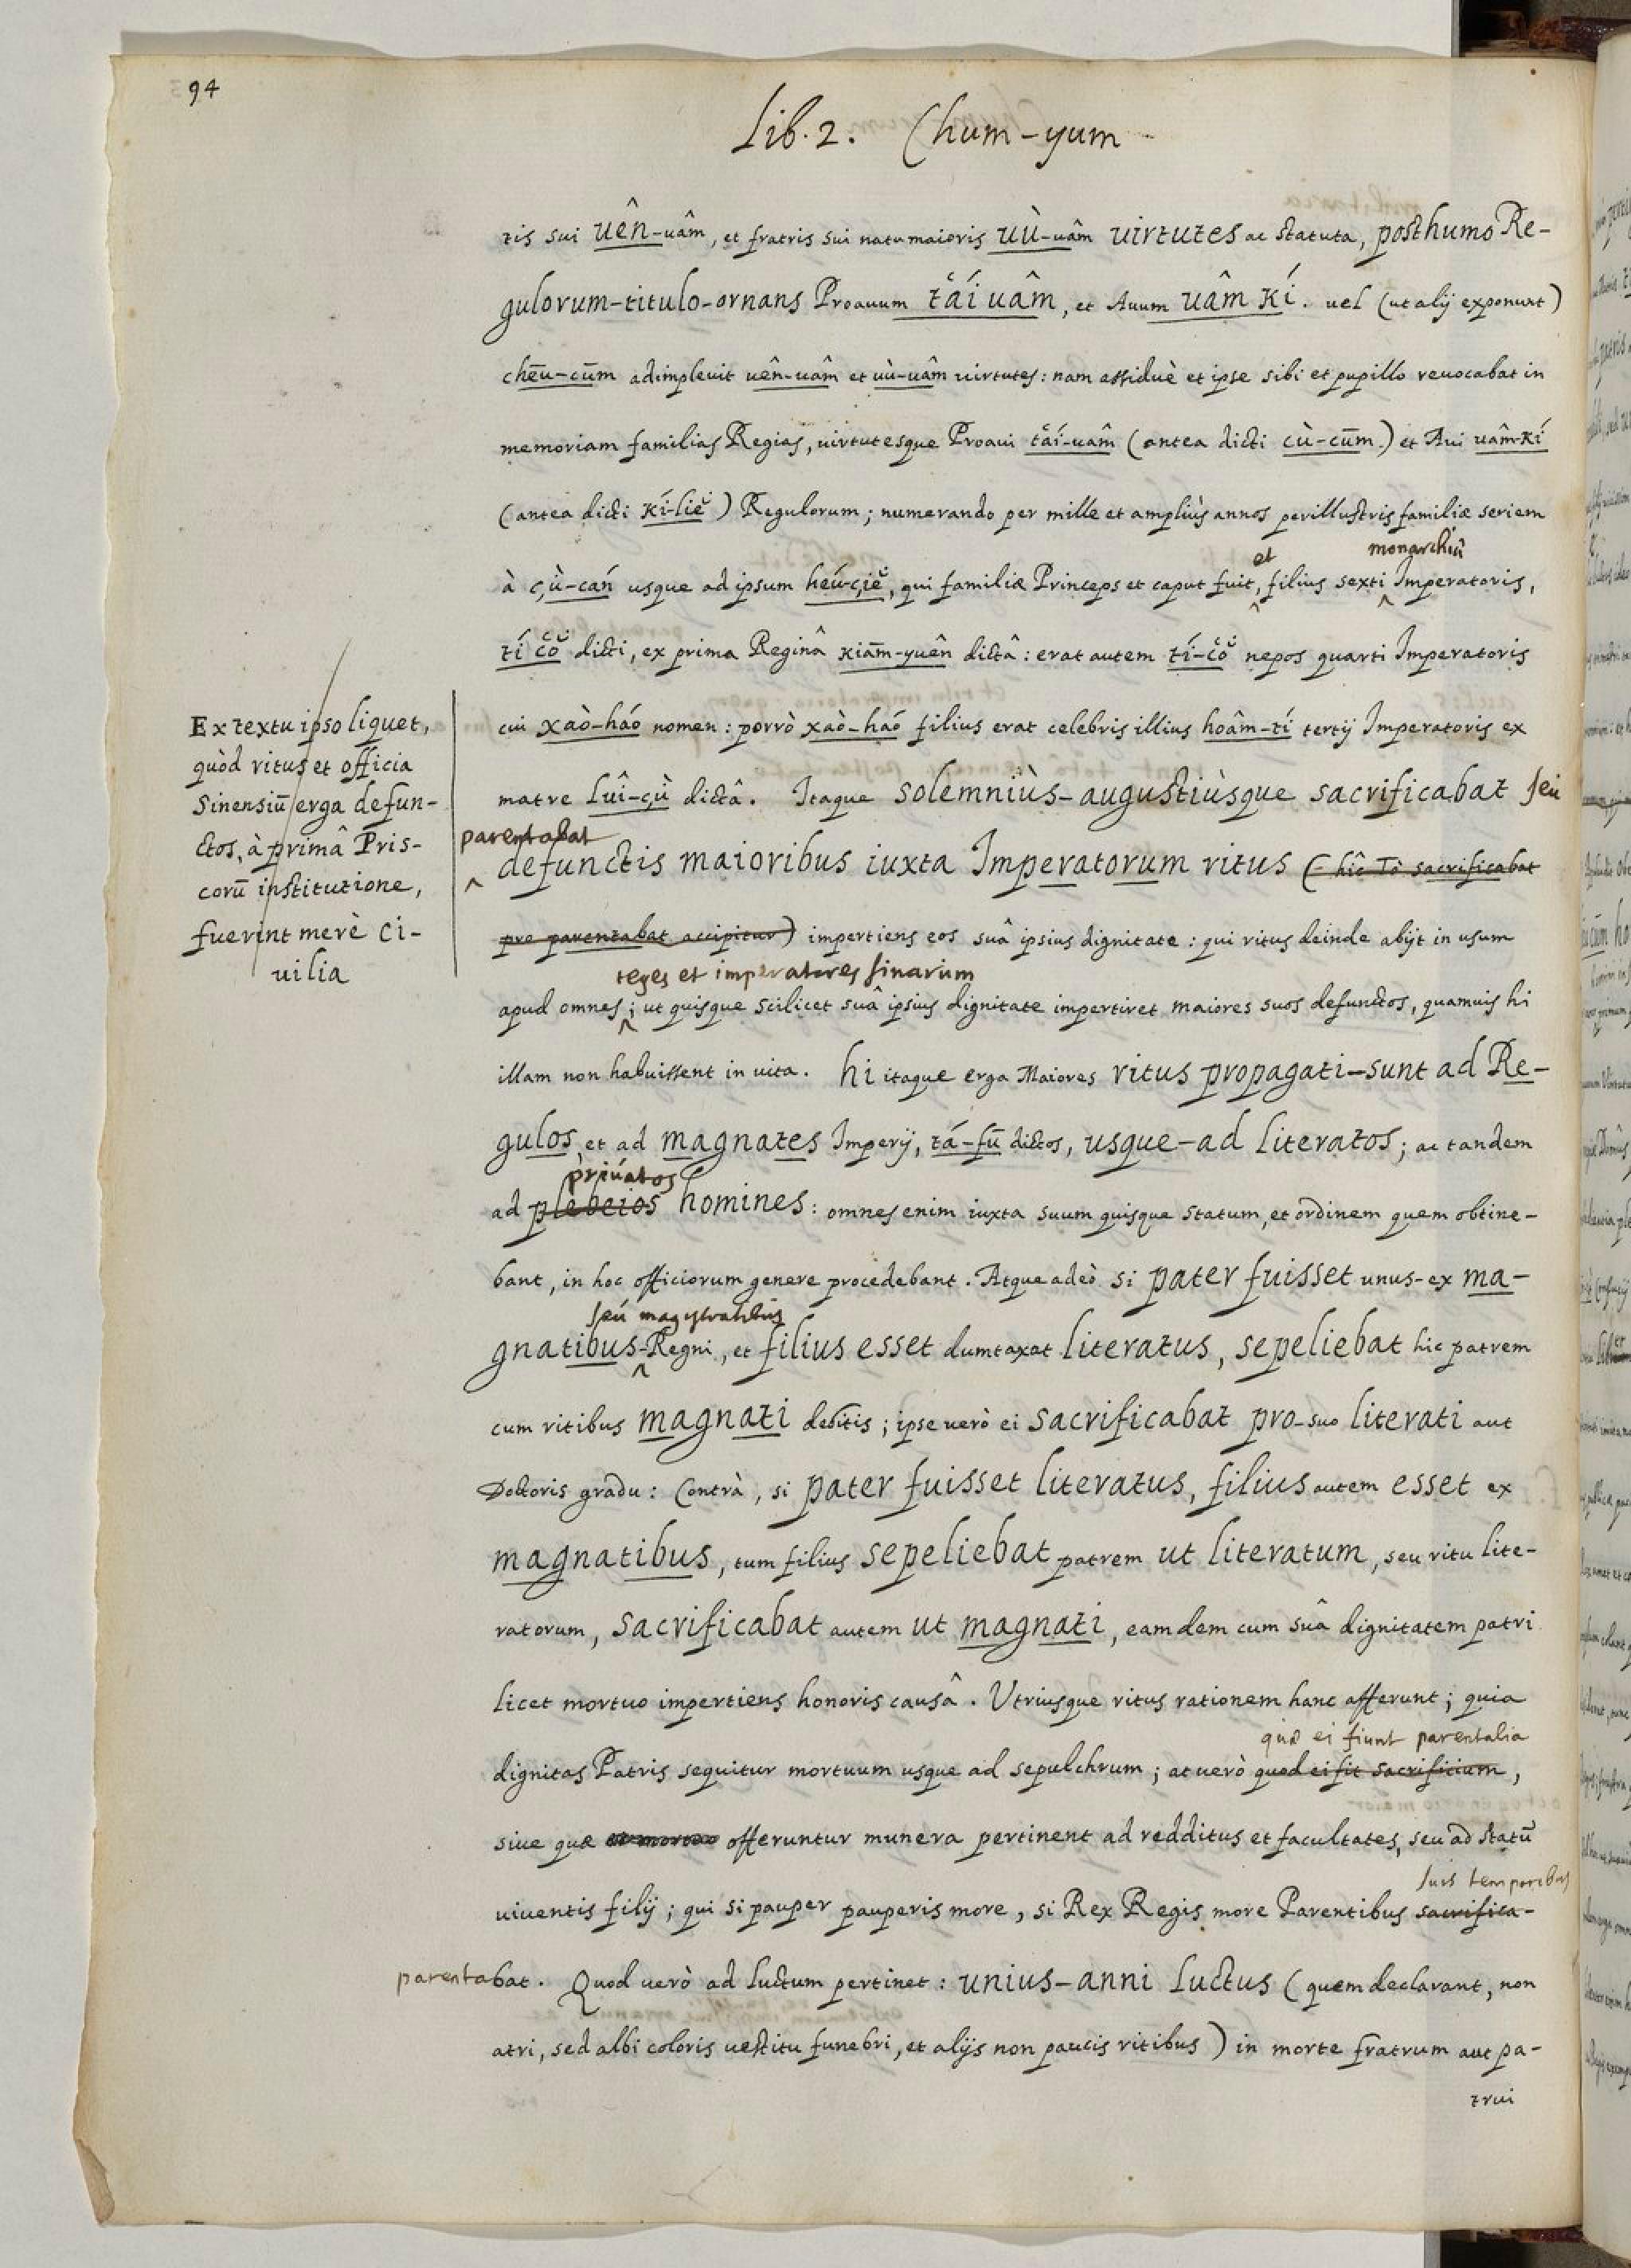 94
Lib. 2. Chum-yum
tis sui uên-uâm, et fratris sui natu maioris uù-uâm virtutes ac statuta, posthumo Re-
gulorum-titulo-ornans Proauum t̔ái uâm, et Auum uâm kí. uel (ut alij exponunt)
cheū-cūm adimpleuit uên-uâm et uù-uâm uirtutes: nam assiduè et ipse sibi et pupillo reuocabat in
memoriam familias Regias, uirtutesque Proaui t̔ái-uâm (antea dicti cù-cūm.) et Aui uâm-kí
(antea dicti kí-liĕ) Regulorum; numerando per mille et ampliùs annos perillustris familiæ seriem
et monarchiæ
à çù-cań usque ad ipsum heú-çiĕ, qui familiæ Princeps et caput fuit, filius sexti Imperatoris,
tí cŏ dicti, ex prima Reginâ kiām-yuên dictâ: erat autem tí-cŏ nepos quarti Imperatoris
cui xaò-haó nomen: porrò xaò-haó filius erat celebris illius hoâm-tí tertij Imperatoris ex
matre Lûi-çù dictâ. Itaque solemniùs-augustiùsque sacrificabat seu
parentabat
defunctis maioribus iuxta Imperatorum ritus (hîc Tò sacrificabat
pro parentabat accipitur) impertiens eos suâ ipsius dignitate: qui ritus deinde abijt in usum
reges et imperatores sinarum
apud omnes; ut quisque scilicet suâ ipsius dignitate impertiret maiores suos defunctos, quamuis hi
illam non habuissent in uita. hi itaque erga Maiores ritus propagati-sunt ad Re-
gulos, et ad magnates Imperij, tá-fū dictos, usque-ad literatos; ac tandem
priuatos
ad plebeios homines: omnes enim iuxta suum quisque statum, et ordinem quem obtine-
bant, in hoc officiorum genere procedebant. Atque adeò si pater fuisset unus-ex ma-
seu magistratibus
gnatibus-Regni, et filius esset dumtaxat literatus, sepeliebat hic patrem
cum ritibus magnati debitis; ipse uerò ei sacrificabat pro-suo literati aut
Doctoris gradu: Contrà, si pater fuisset literatus, filius autem esset ex
magnatibus, tum filius sepeliebat patrem ut literatum, seu ritu lite-
ratorum, sacrificabat autem ut magnati, eamdem cum suâ dignitatem patri
licet mortuo impertiens honoris causâ. Utriusque ritus rationem hanc afferunt; quia
quæ ei fiunt parentalia
dignitas Patris sequitur mortuum usque ad sepulchrum; at uerò quod ei fit sacrificium,
siue quæ ei mortuo offeruntur munera pertinent ad redditus et facultates, seu ad statū
suis temporibus
uiuentis filij; qui si pauper pauperis more, si Rex Regis more Parentibus sacrifica-
parentabat. Quod uerò ad luctum pertinet: unius-anni luctus (quem declarant, non
atri, sed albi coloris uestitu funebri, et alijs non paucis ritibus) in morte fratrum aut pa-
trui
Ex textu ipso liquet,
quòd ritus et officia
Sinensiū erga defun-
ctos, à primâ Pris-
corū institutione,
fuerint merè Ci-
uilia